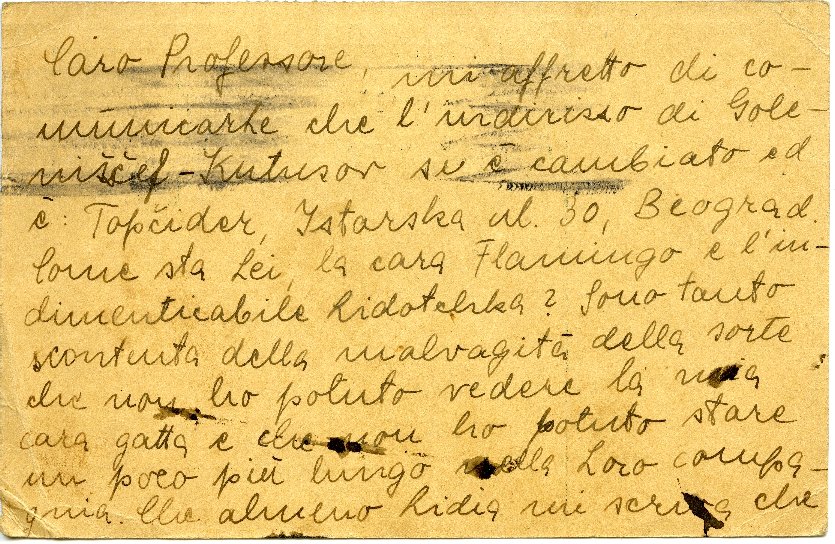 Caro Professore, mi affretto di co-
municarLe che l'indirisso di Gole-
niščef-Kutusov si è cambiato ed
è: Topčider, Istarska ul. 30, Beograd.
Come sta Lei, la cara Flamingo e l'in-
dimenticabile Lidotchka? Sono tanto
scontenta della malvagità della sorte
che non ho potuto vedere la mia
cara gatta e che non ho potuto stare
un poco più lungo nella Loro compa-
gnia. Che almeno Lidia mi scriva che